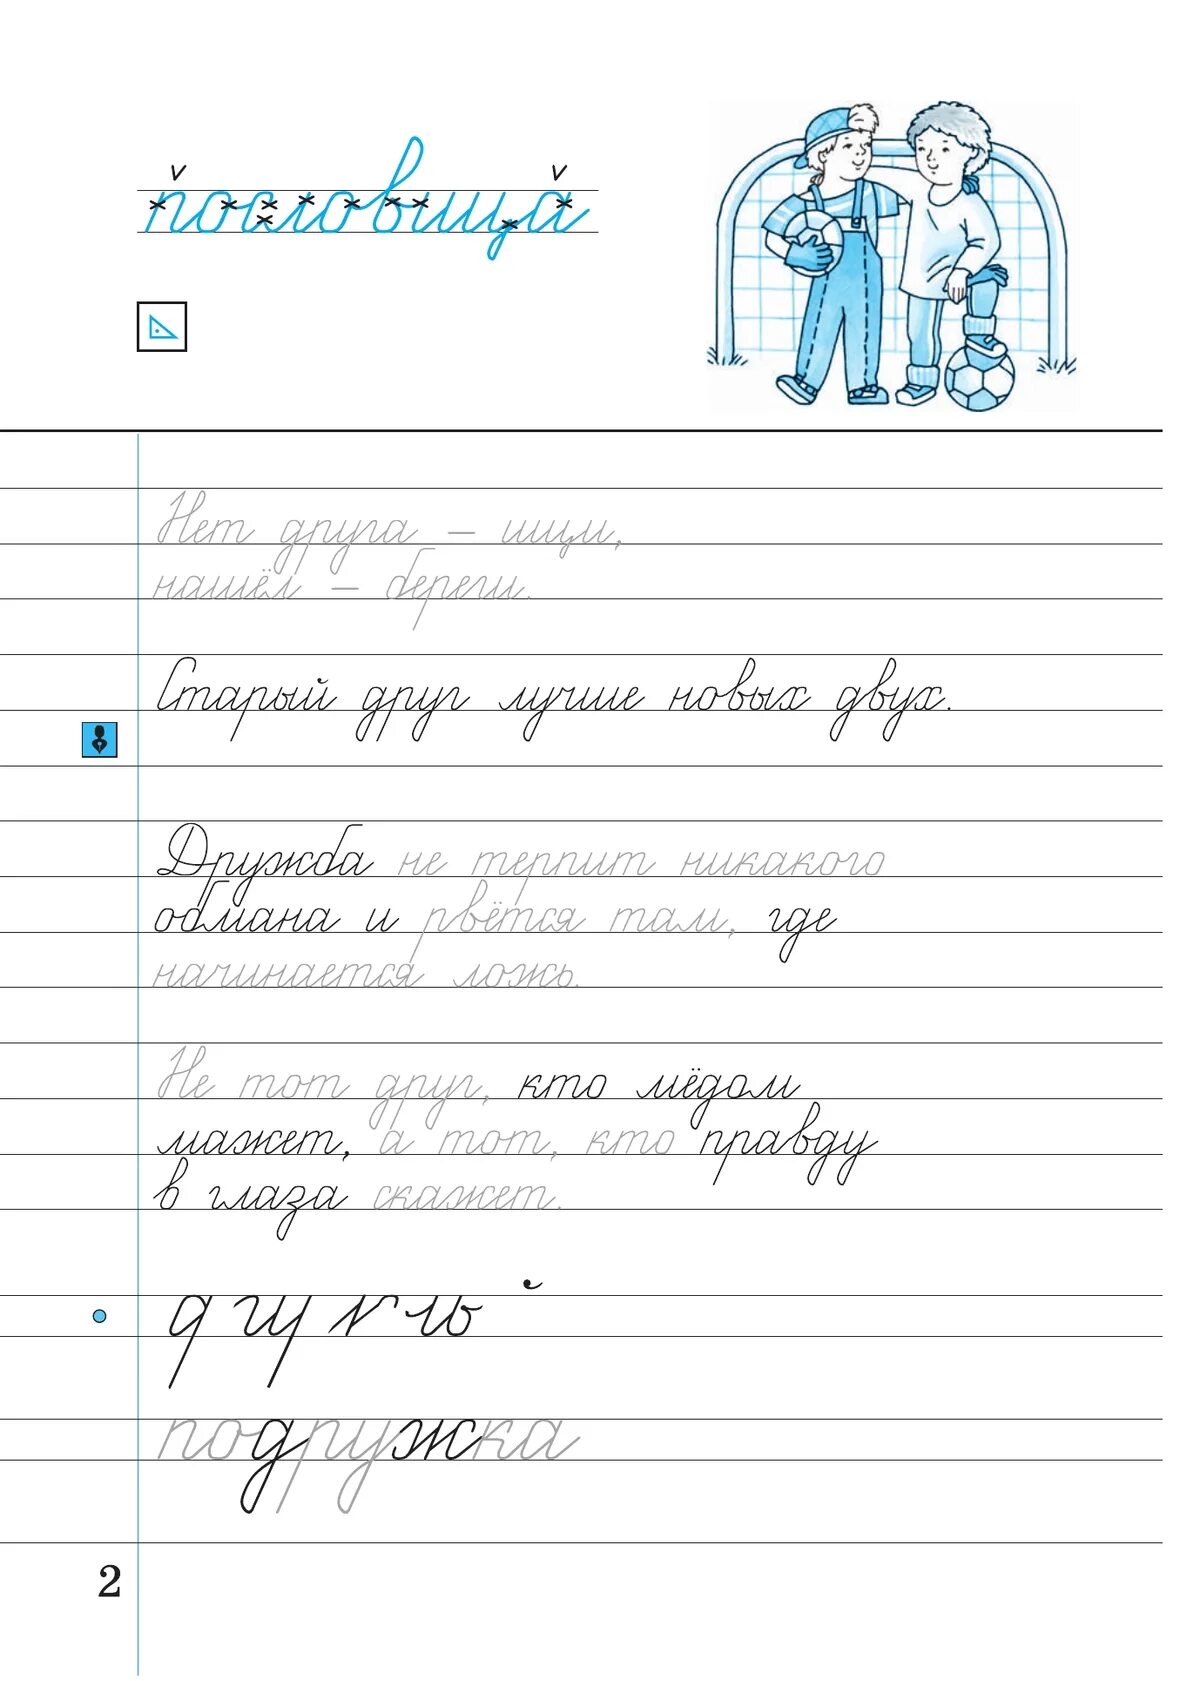 пословица
Нет друга – ищи,
нашёл – береги.
Старый друг лучше новых двух.
Дружба не терпит никакого
обмана и рвётся там, где
начинается ложь.
Не тот друг, кто мёдом
мажет, а тот, кто правду
в глаза скажет.
подружка
2